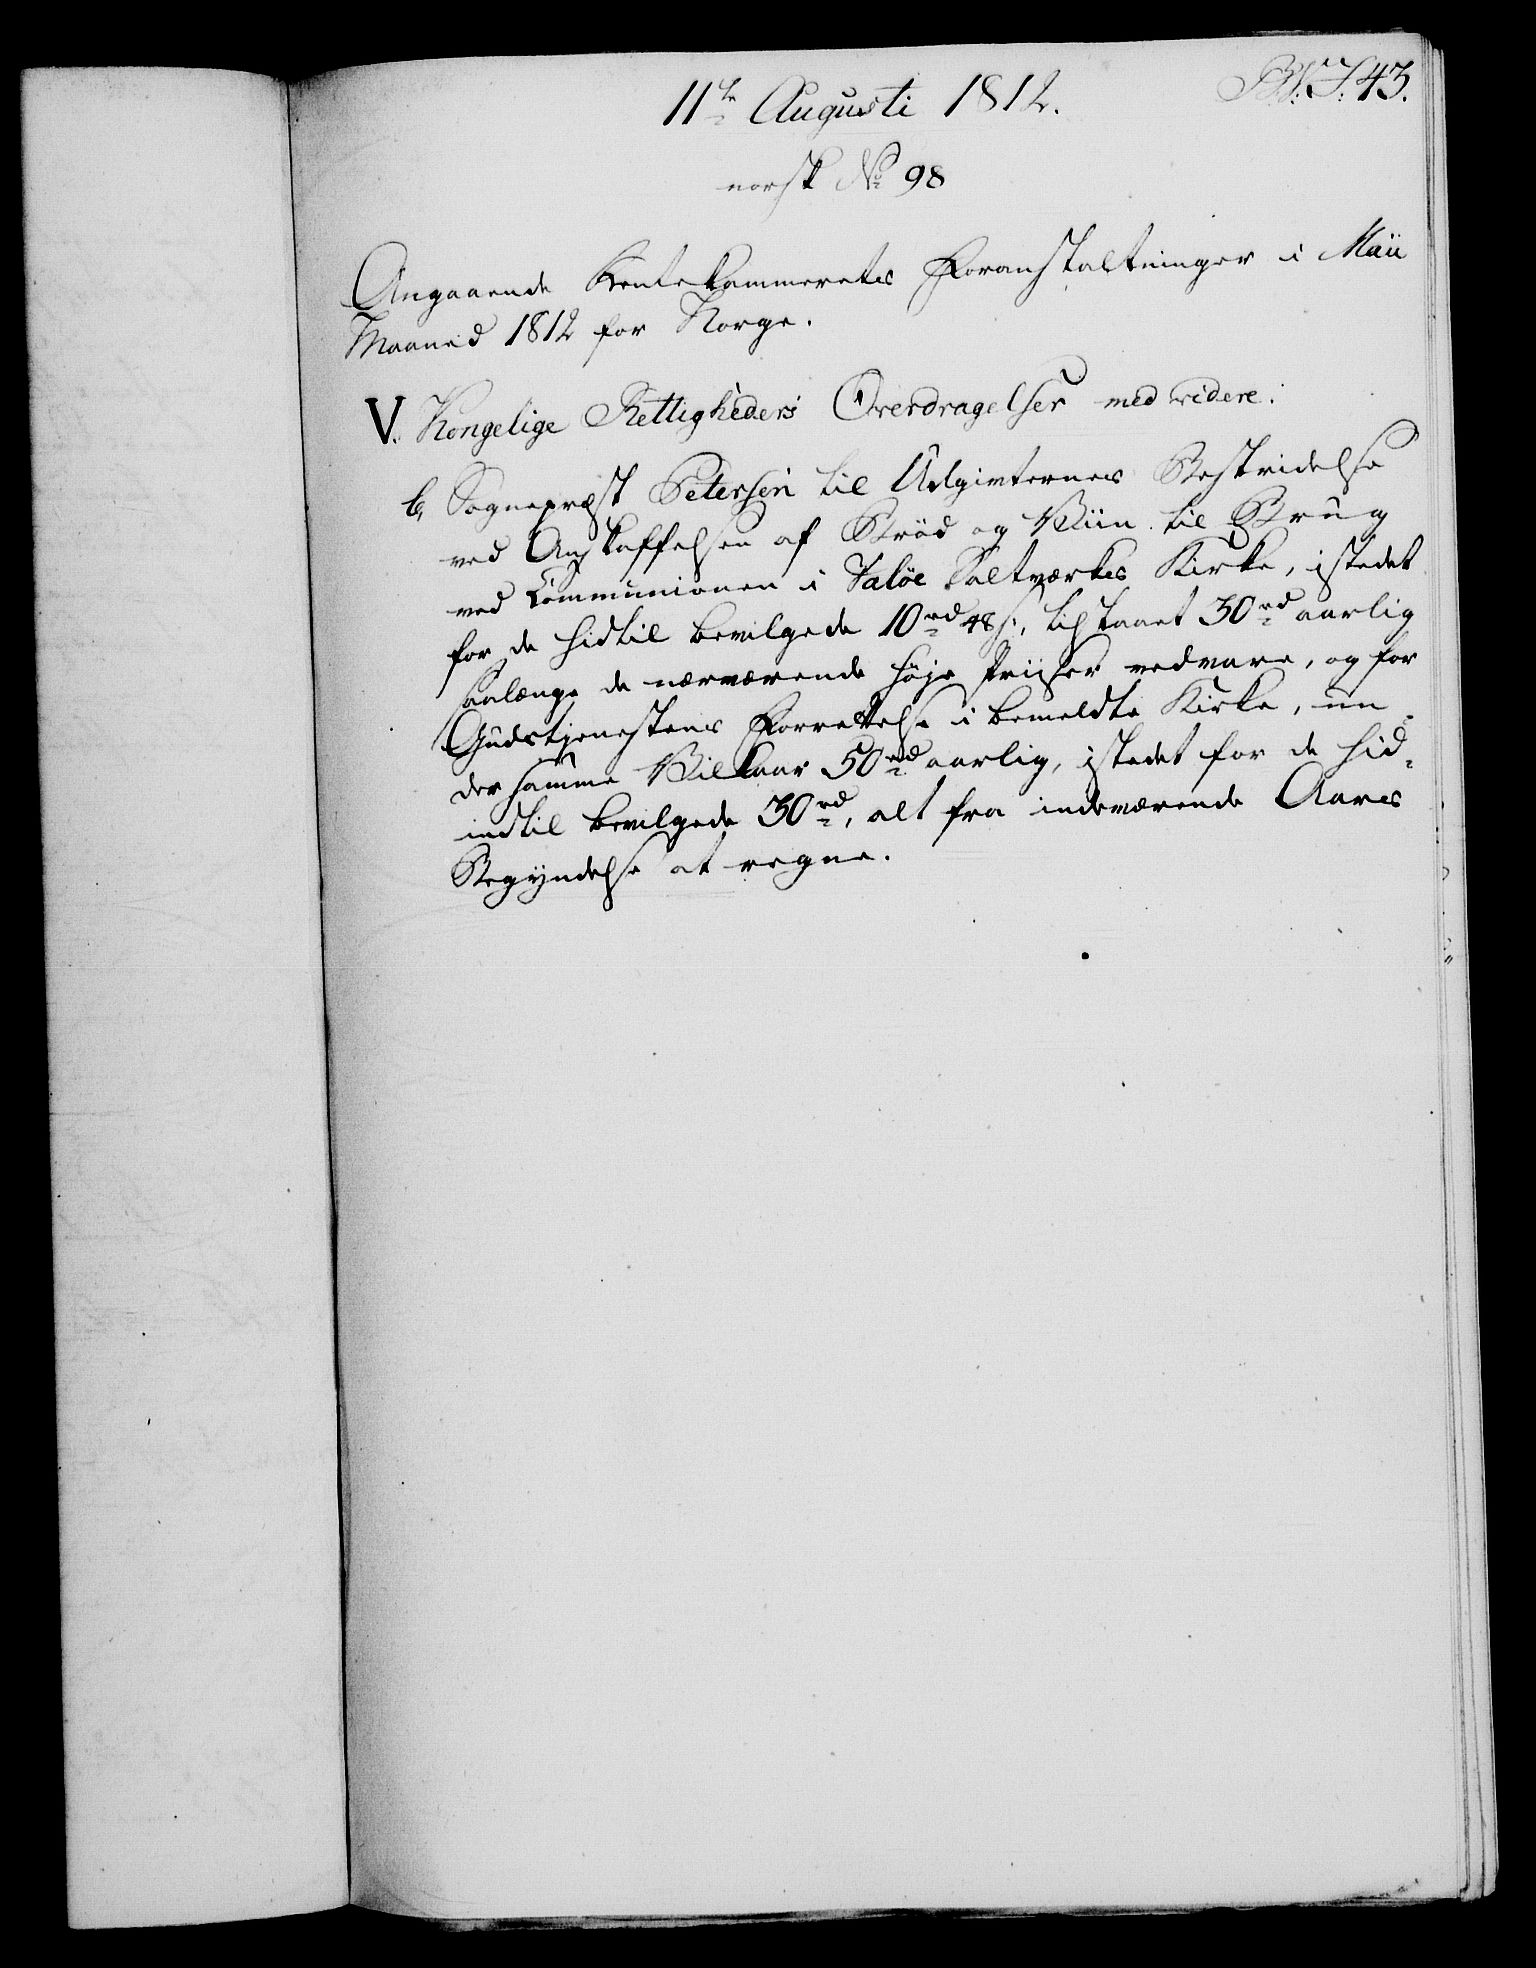 11te Augusti 1812.
43.
norsk No 98
Angaaende Rentekammerets Foranstaltninger i Maii
Maaned 1812 for Norge.
V. Kongelige Rettigheders Overdragelser med videre.
b, Sognepræst Petersen til Udgivternes Bestridelse
ved Anskaffelsen af Brød og Viin til Brug
ved Communionen i Valøe Saltværkes Kirke, istedet
for de hidtil bevilgede 10rd 48s, tilstaaet 30rd aarlig
saalænge de nærværende høje Priiser vedvare, og for
Gudstjenestens Forrettelse i bemeldte Kirke, un-
der samme Vilkaar 50rd aarlig, istedet for de hid-
indtil bevilgede 30rd, alt fra indeværende Aares
Begyndelse at regne.